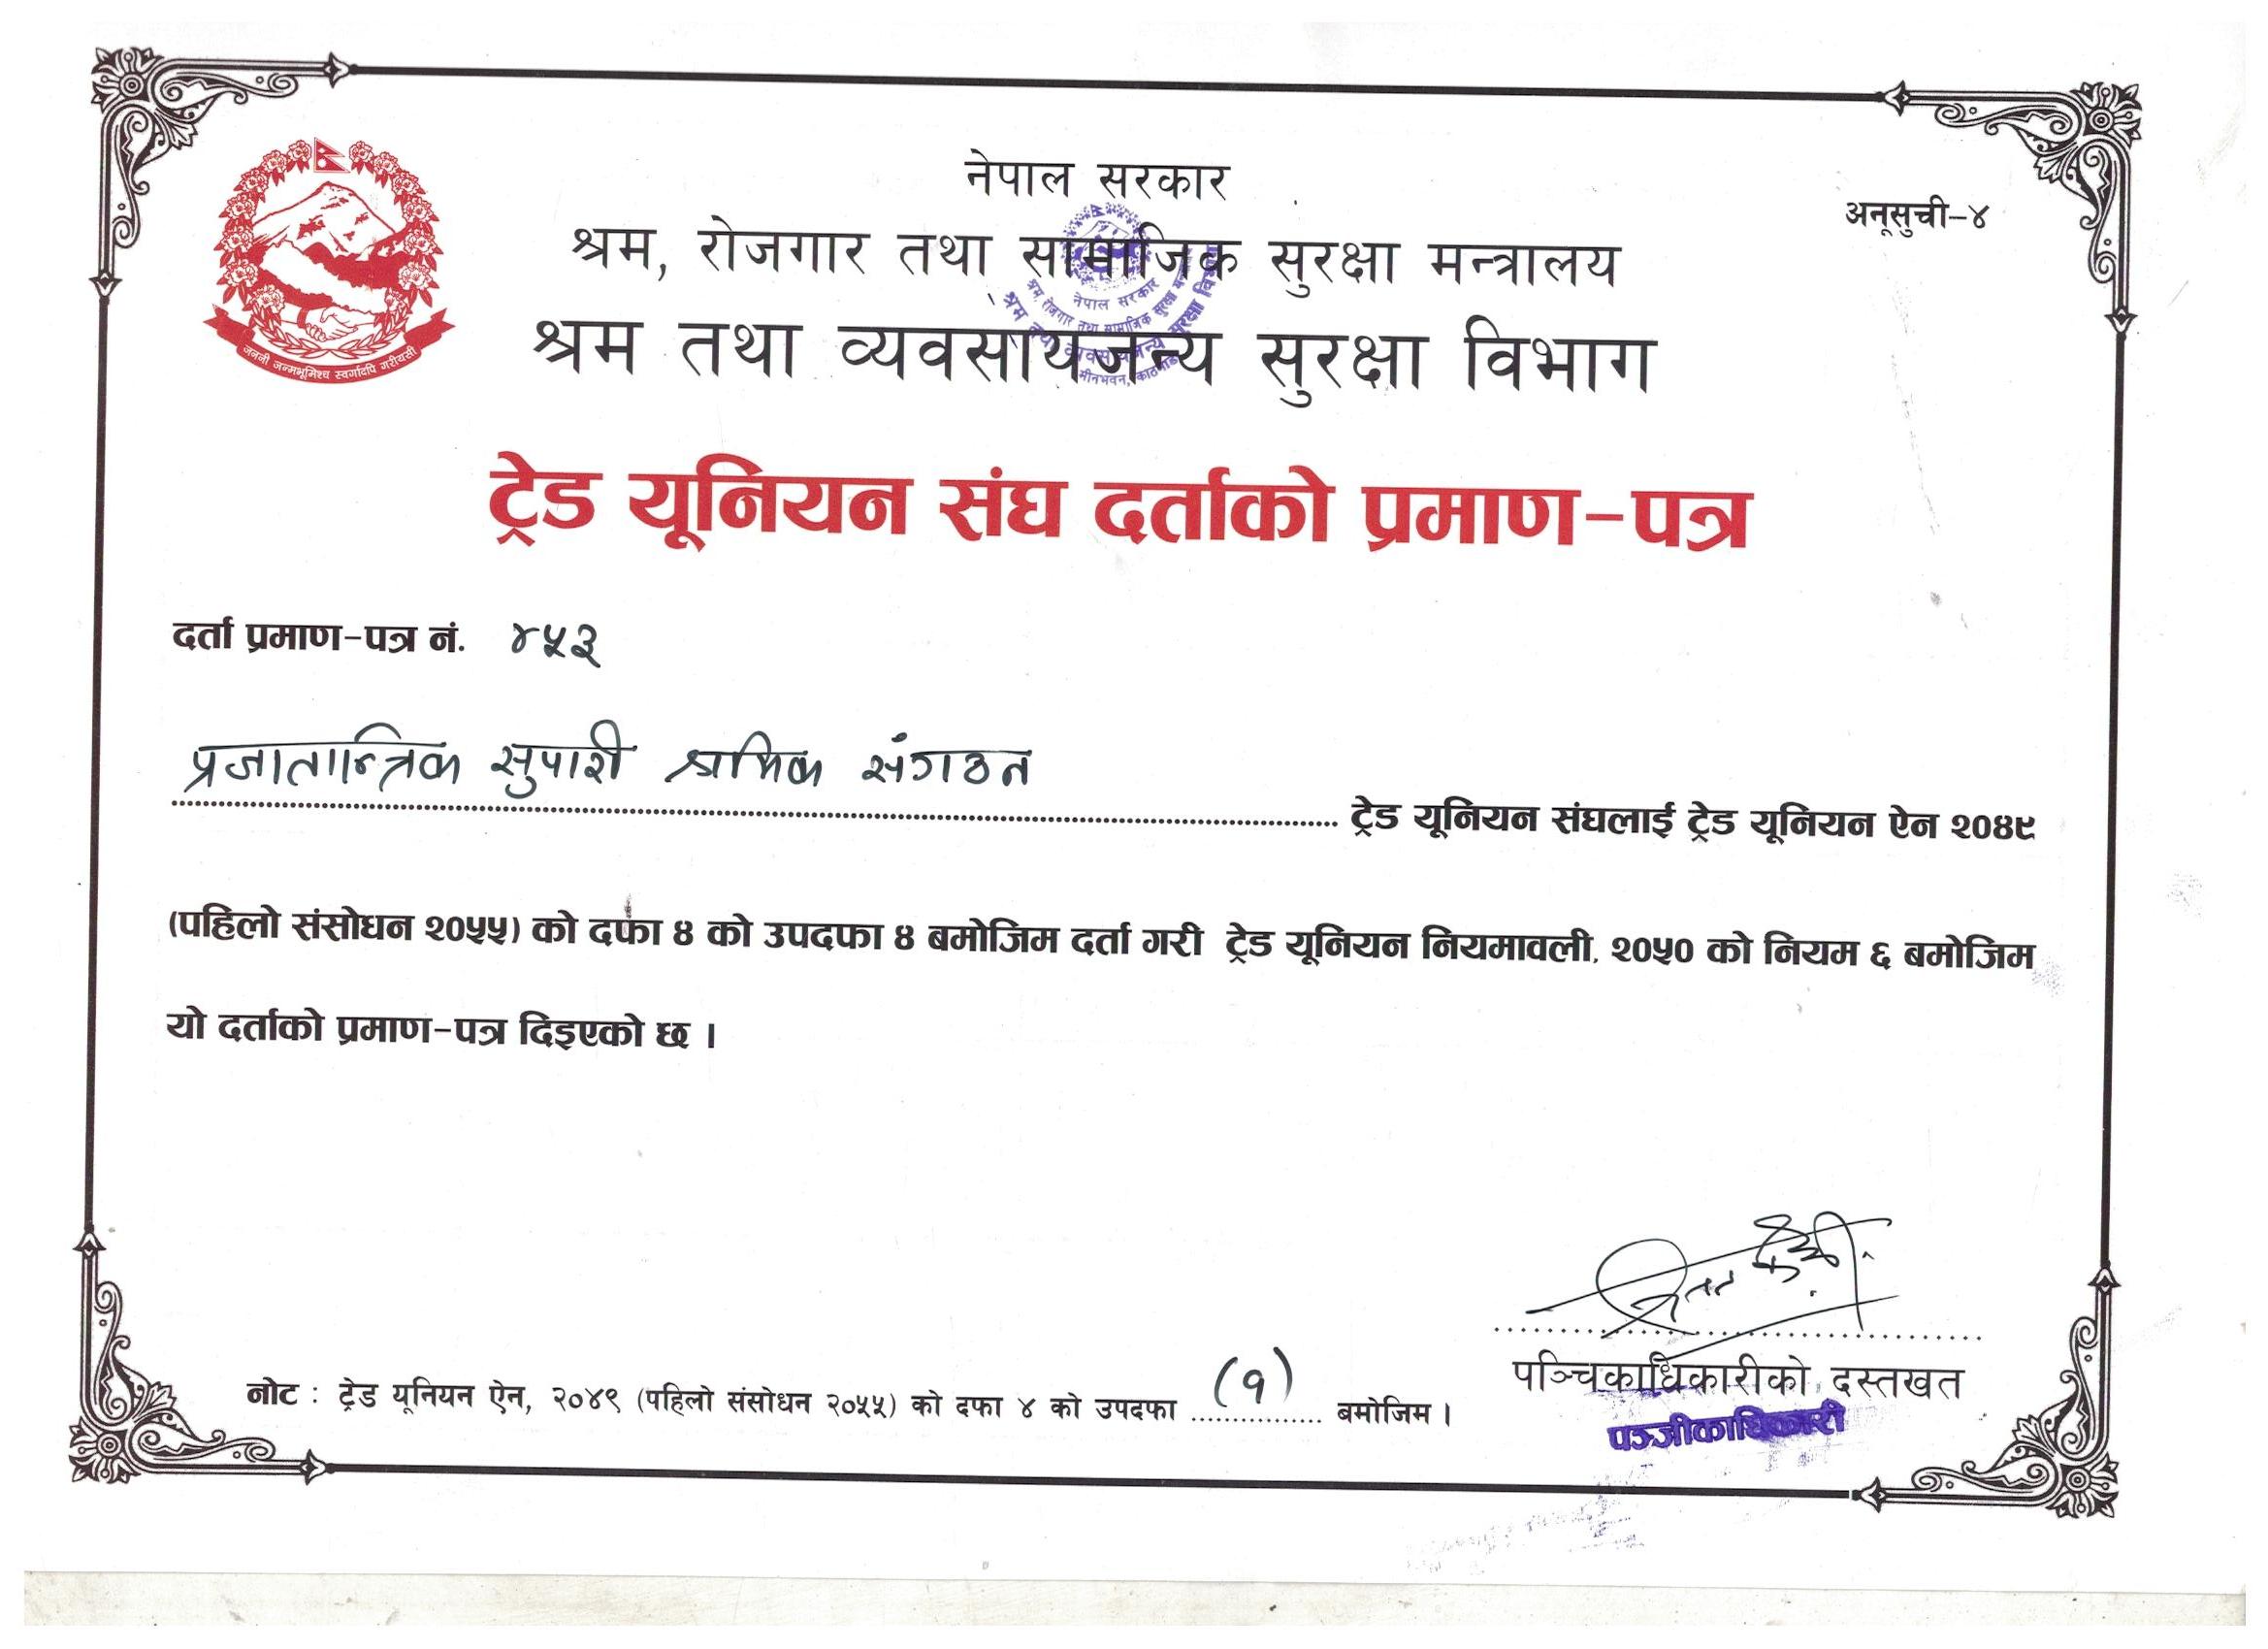 नेपाल सरकार
अनूसुची-४
श्रम, रोजगार तथा सामाजिक सुरक्षा मन्त्रालय
श्रम तथा व्यवसायजन्य सुरक्षा विभाग
नेपाल सरकार
श्रम, रोजगार तथा सामाजिक सुरक्षा
श्रम तथा व्यवसायजन्य सुरक्षा विभाग
मीनभवन, काठमाडौं
जननी जन्मभूमिश्च स्वर्गादपि गरीयसी
ट्रेड यूनियन संघ दर्ताको प्रमाण-पत्र
दर्ता प्रमाण-पत्र नं. ४५३
प्रजातान्त्रिक सुपारी श्रमिक संगठन ट्रेड यूनियन संघलाई ट्रेड यूनियन ऐन २०४९
(पहिलो संसोधन २०५५) को दफा ४ को उपदफा ४ बमोजिम दर्ता गरी ट्रेड यूनियन नियमावली, २०५० को नियम ६ बमोजिम
यो दर्ताको प्रमाण-पत्र दिइएको छ ।
पञ्चिकाधिकारीको दस्तखत
पञ्जीकाधिकारी
नोट : ट्रेड यूनियन ऐन, २०४९ (पहिलो संसोधन २०५५) को दफा ४ को उपदफा (१) बमोजिम ।